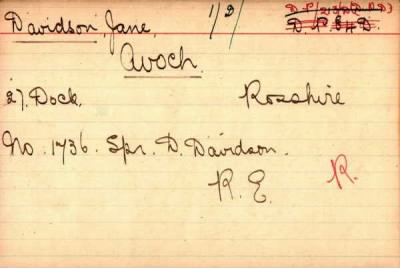 Davidson, Jane, 1/2/
D.P.&H.D.
Avoch.
27. Dock. Rosshire
No. 1736. Spr. D. Davidson.
R. E. R.